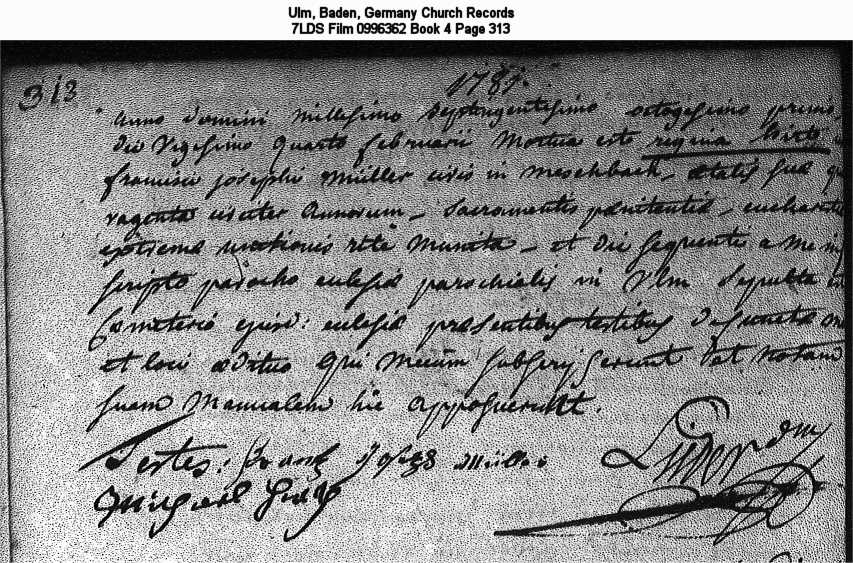 Ulm, Baden, Germany Church Records
7LDS Film 0996362 Book 4 Page 313
1781.
313
Anno Domini Millesimo Septingentesimo octogesimo primo,
die Vigesimo quarto februarii Mortua est regina
francisci josephi Müller civis in Meschbach, ætatis suæ
ragenta circiter Annorum, Sacramentis pœnitentiæ,
extremæ unctionis rite Munita et die sequente a me in
scripto parocho ecclesiæ parochialis in Ulm Sepulta
Cœmeterio ejusd: ecclesiæ præsentibus testibus
et loci ædituo qui mecum
suam Manualem hic apposuerunt.
Testes: Frantz Joseph Müller
Michael